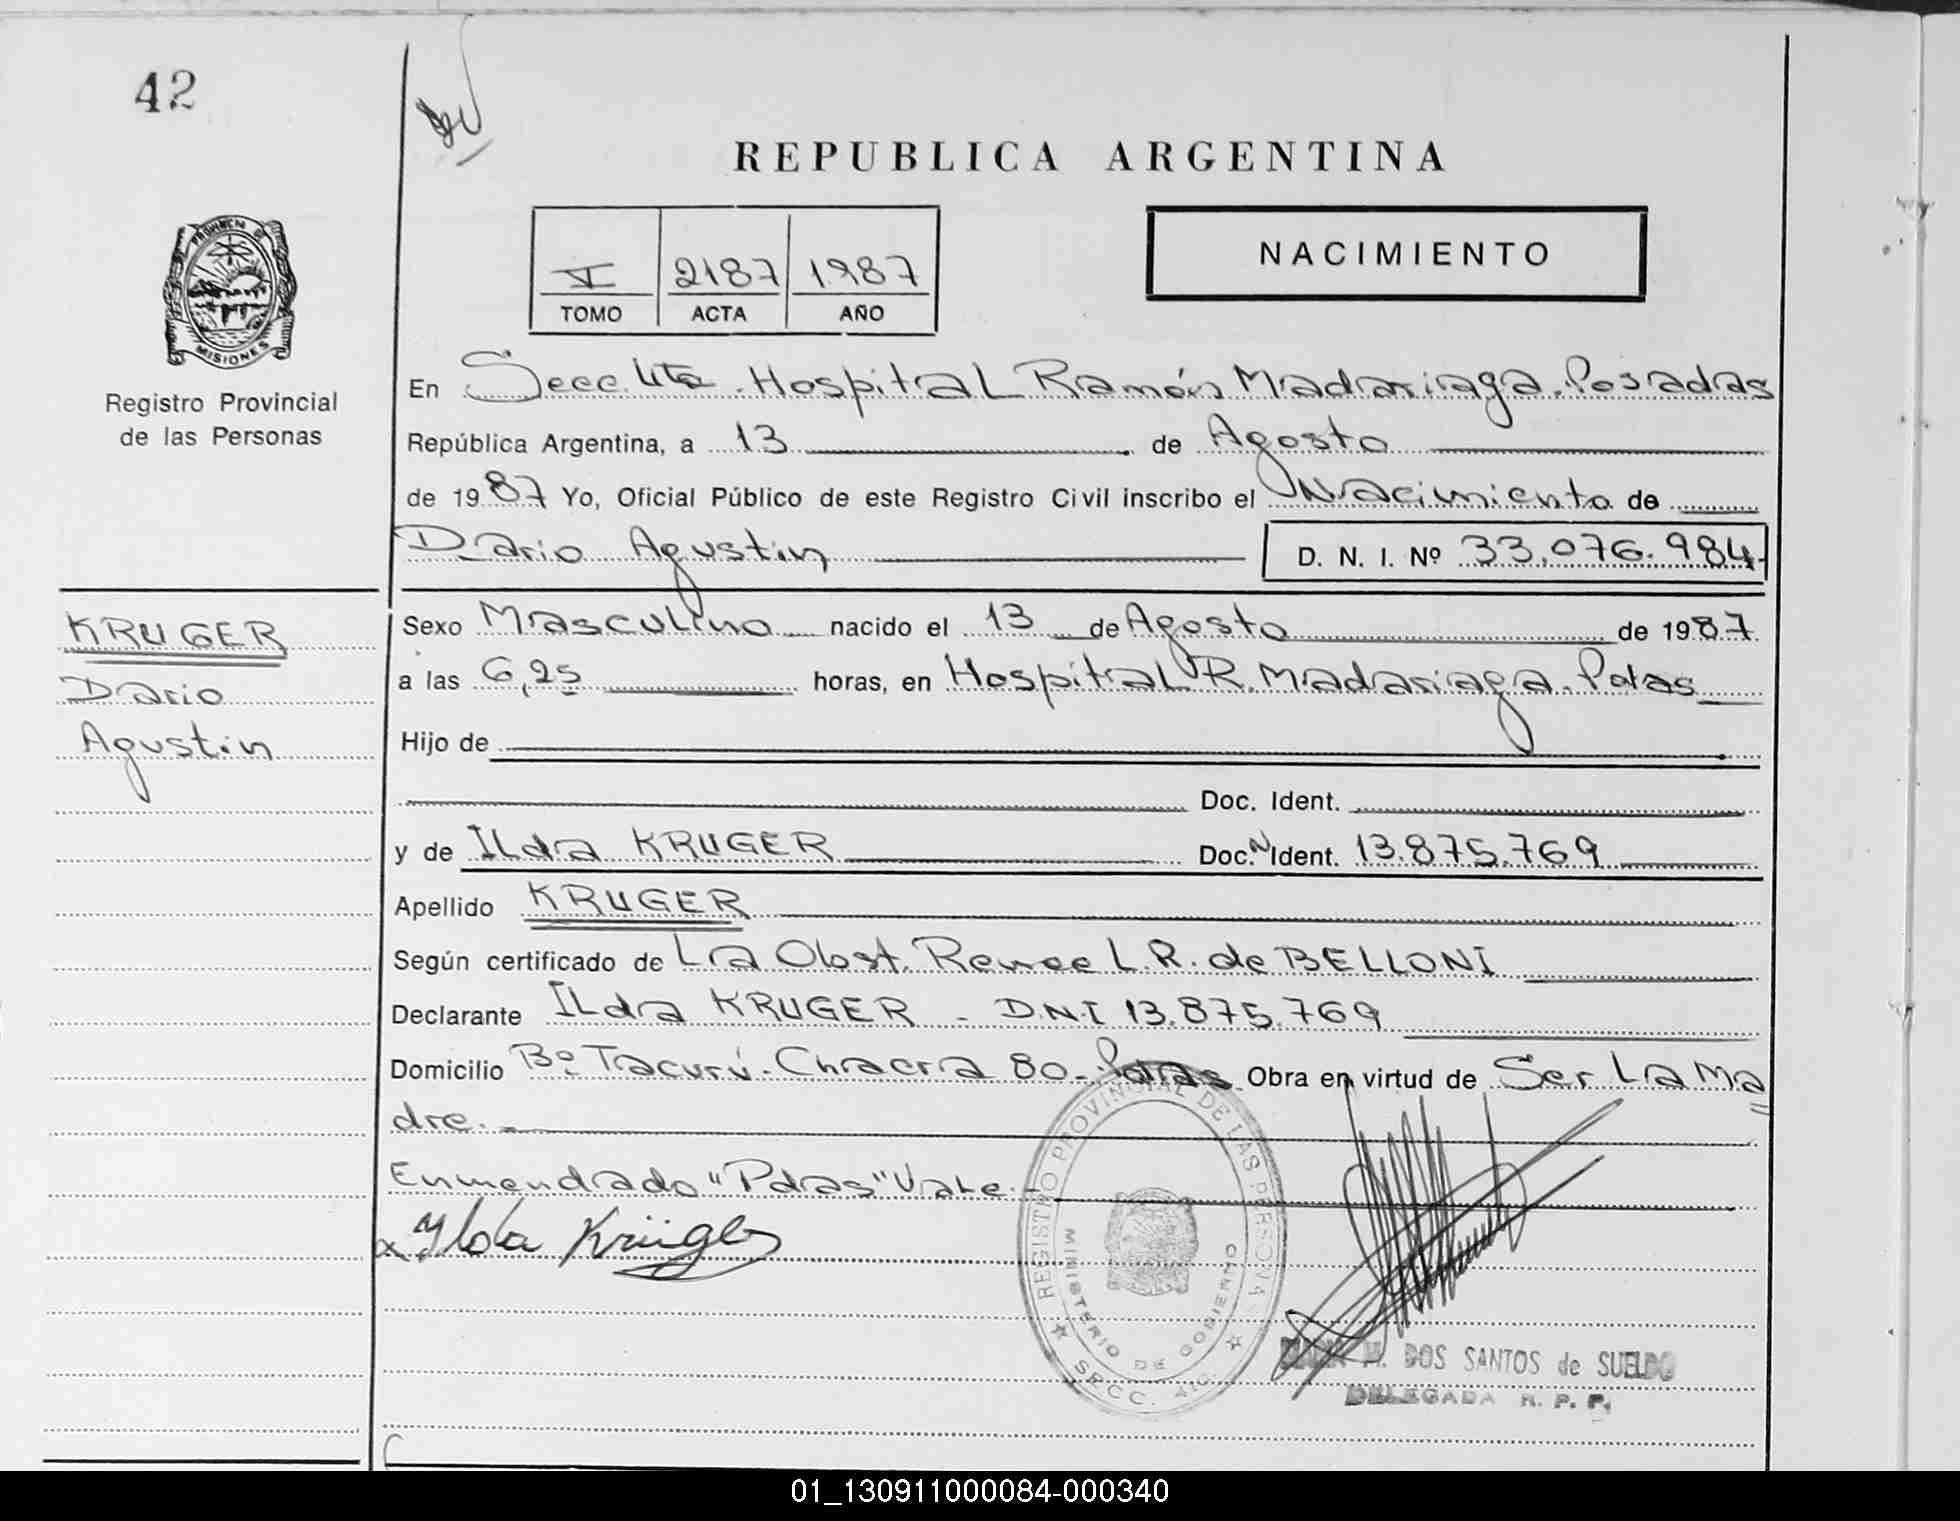 42
REPUBLICA ARGENTINA
V 2187 1987
TOMO ACTA AÑO
NACIMIENTO
PROVINCIA DE
MISIONES
Registro Provincial
de las Personas
En Secc. 4ta. Hospital Ramón Madariaga. Posadas
República Argentina, a 13 de Agosto
de 1987 Yo, Oficial Público de este Registro Civil inscribo el Nacimiento de
Dario Agustin D. N. I. Nº 33.076.984.
KRUGER
Dario
Agustin
Sexo Masculino nacido el 13 de Agosto de 1987.
a las 6,25 horas, en Hospital R. Madariaga. Pdas
Hijo de
Doc. Ident.
y de ILda KRUGER Doc. N Ident. 13.875.769
Apellido KRUGER
Según certificado de La Obst. Renee L. R. de BELLONI
Declarante ILda KRUGER - D.N.I 13.875.769
Domicilio Bº Tacurú. Chacra 80 - Pdas Obra en virtud de Ser La Ma
dre.
Enmendado "Pdas" Vale.-
x Ylda Krüger
REGISTRO PROVINCIAL DE LAS PERSONAS
MINISTERIO DE GOBIERNO
SECC.
M. DOS SANTOS de SUELDO
DELEGADA R. P. P.
01_130911000084-000340